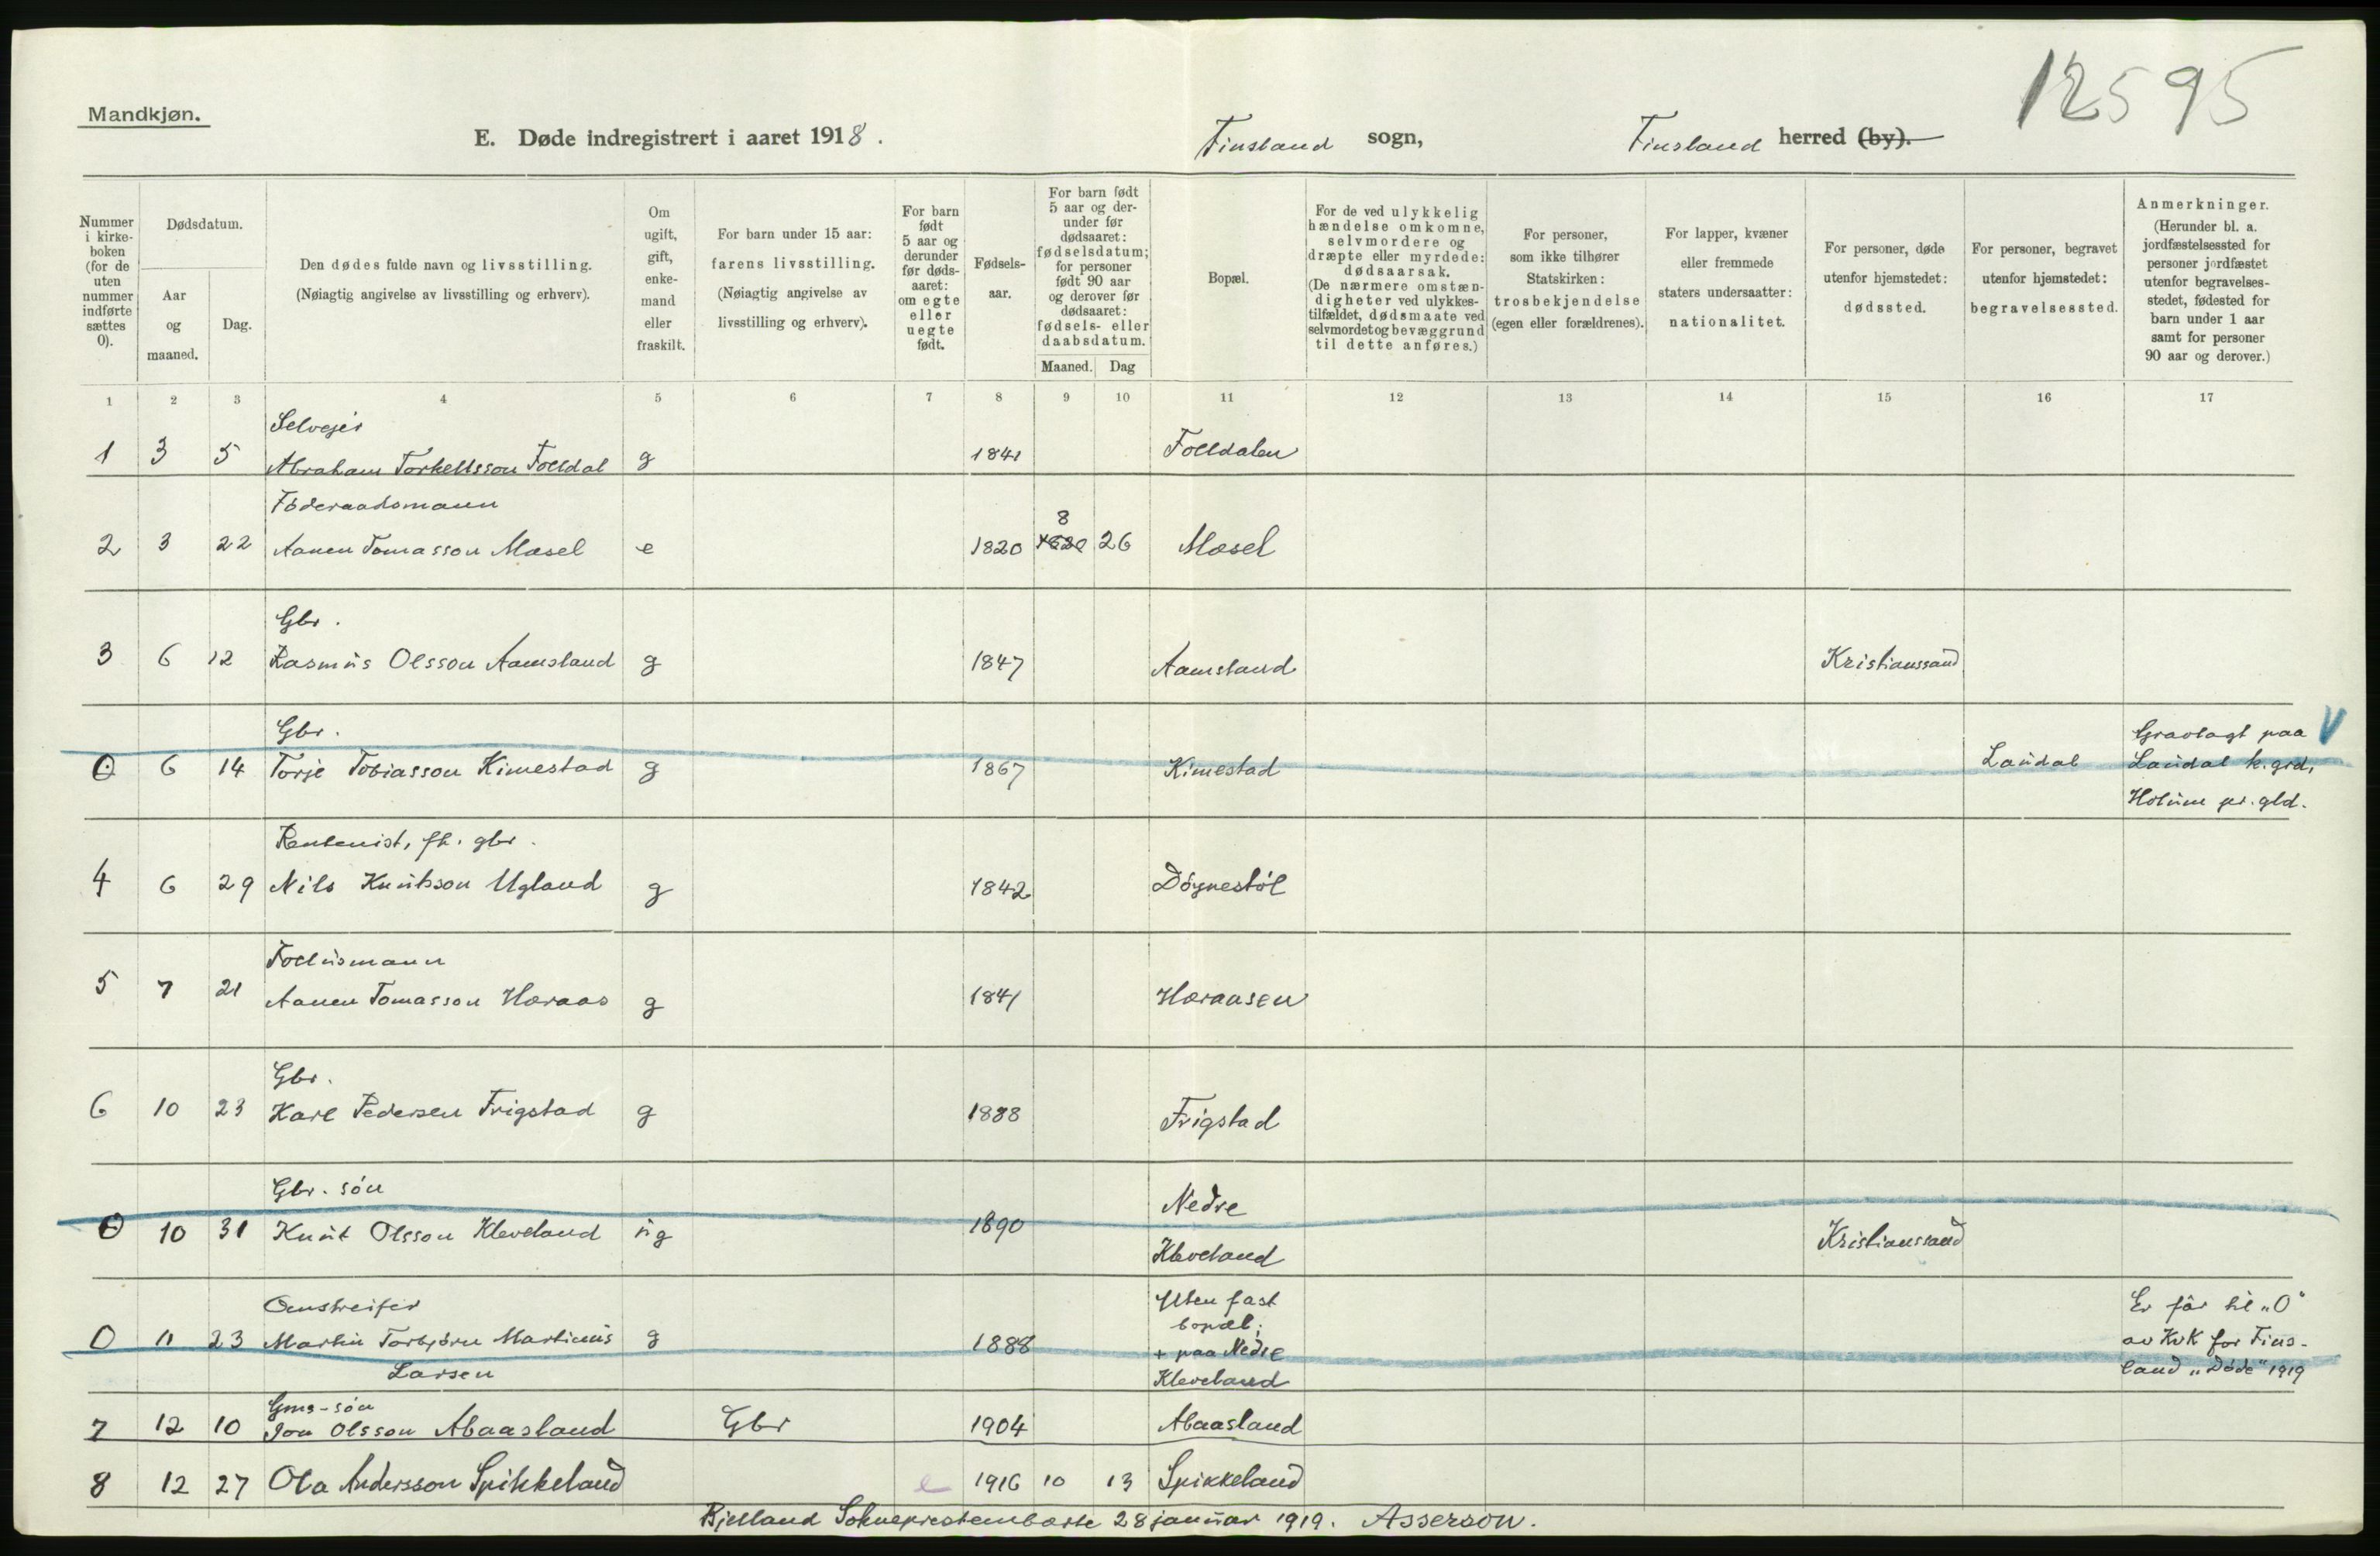 12595
Mandkjøn.
E. Døde indregistrert i aaret 1918. Finsland sogn, Finsland herred (by).
Nummer i kirke-boken (for de uten nummer indførte sættes 0).
Dødsdatum.
Aar og maaned.
Dag.
Den dødes fulde navn og livsstilling.
(Nøiagtig angivelse av livsstilling og erhverv).
Om ugift, gift, enke-mand eller fraskilt.
For barn under 15 aar: farens livsstilling. (Nøiagtig angivelse av livsstilling og erhverv).
For barn født 5 aar og derunder før døds-aaret: om egte eller uegte født.
Fødsels-aar.
For barn født 5 aar og der-under før dødsaaret: fødselsdatum; for personer født 90 aar og derover før dødsaaret: fødsels- eller daabsdatum.
Maaned. Dag
Bopæl.
For de ved ulykkelig hændelse omkomne, selvmordere og dræpte eller myrdede: dødsaarsak. (De nærmere omstæn-digheter ved ulykkes-tilfældet, dødsmaate ved selvmordet og bevæggrund til dette anføres.)
For personer, som ikke tilhører Statskirken: trosbekjendelse (egen eller forældrenes).
For lapper, kvæner eller fremmede staters undersaatter: nationalitet.
For personer, døde utenfor hjemstedet: dødssted.
For personer, begravet utenfor hjemstedet: begravelsessted.
Anmerkninger. (Herunder bl. a. jordfæstelsessted for personer jordfæstet utenfor begravelses-stedet, fødested for barn under 1 aar samt for personer 90 aar og derover.)
1 2 3 4 5 6 7 8 9 10 11 12 13 14 15 16 17
Selveier
1 3 5 Abraham Torkellsson Foldal g 1841 Folldalen
Føderaadsmann
8
2 3 22 Aanen Tomasson Mæsel e 1820 1820 26 Mæsel
Gbr.
3 6 12 Rasmus Olsson Aamsland g 1847 Aamsland Kristianssand
Gbr. Gravlagt paa V
0 6 14 Torje Tobiasson Kimestad g 1867 Kimestad Laudal Laudal k.grd,
Holum pr. gld.
Rentenist, fh. gbr.
4 6 29 Nils Knutsson Ugland g 1842 Døynestøl
Follusmann
5 7 21 Aanen Tomasson Høraas g 1841 Høraasen
Gbr.
6 10 23 Karl Pedersen Frigstad g 1888 Frigstad
Gbr. søn Nedre
0 10 31 Knut Olsson Kleveland ug 1890 Kleveland Kristianssand
Omstreifer Uten fast Er før til „0"
bopæl;
0 11 23 Martin Torbjørn Martinius g 1888 + paa Nedre av KvK for Fins-
Larsen Kleveland land „Døde" 1919
Gms-søn
7 12 10 Jon Olsson Abaasland Gbr 1904 Abaasland
8 12 27 Ola Andersson Spikkeland e 1916 10 13 Spikkeland
Bjelland Sokneprestembætte 28 januar 1919. Asserson.